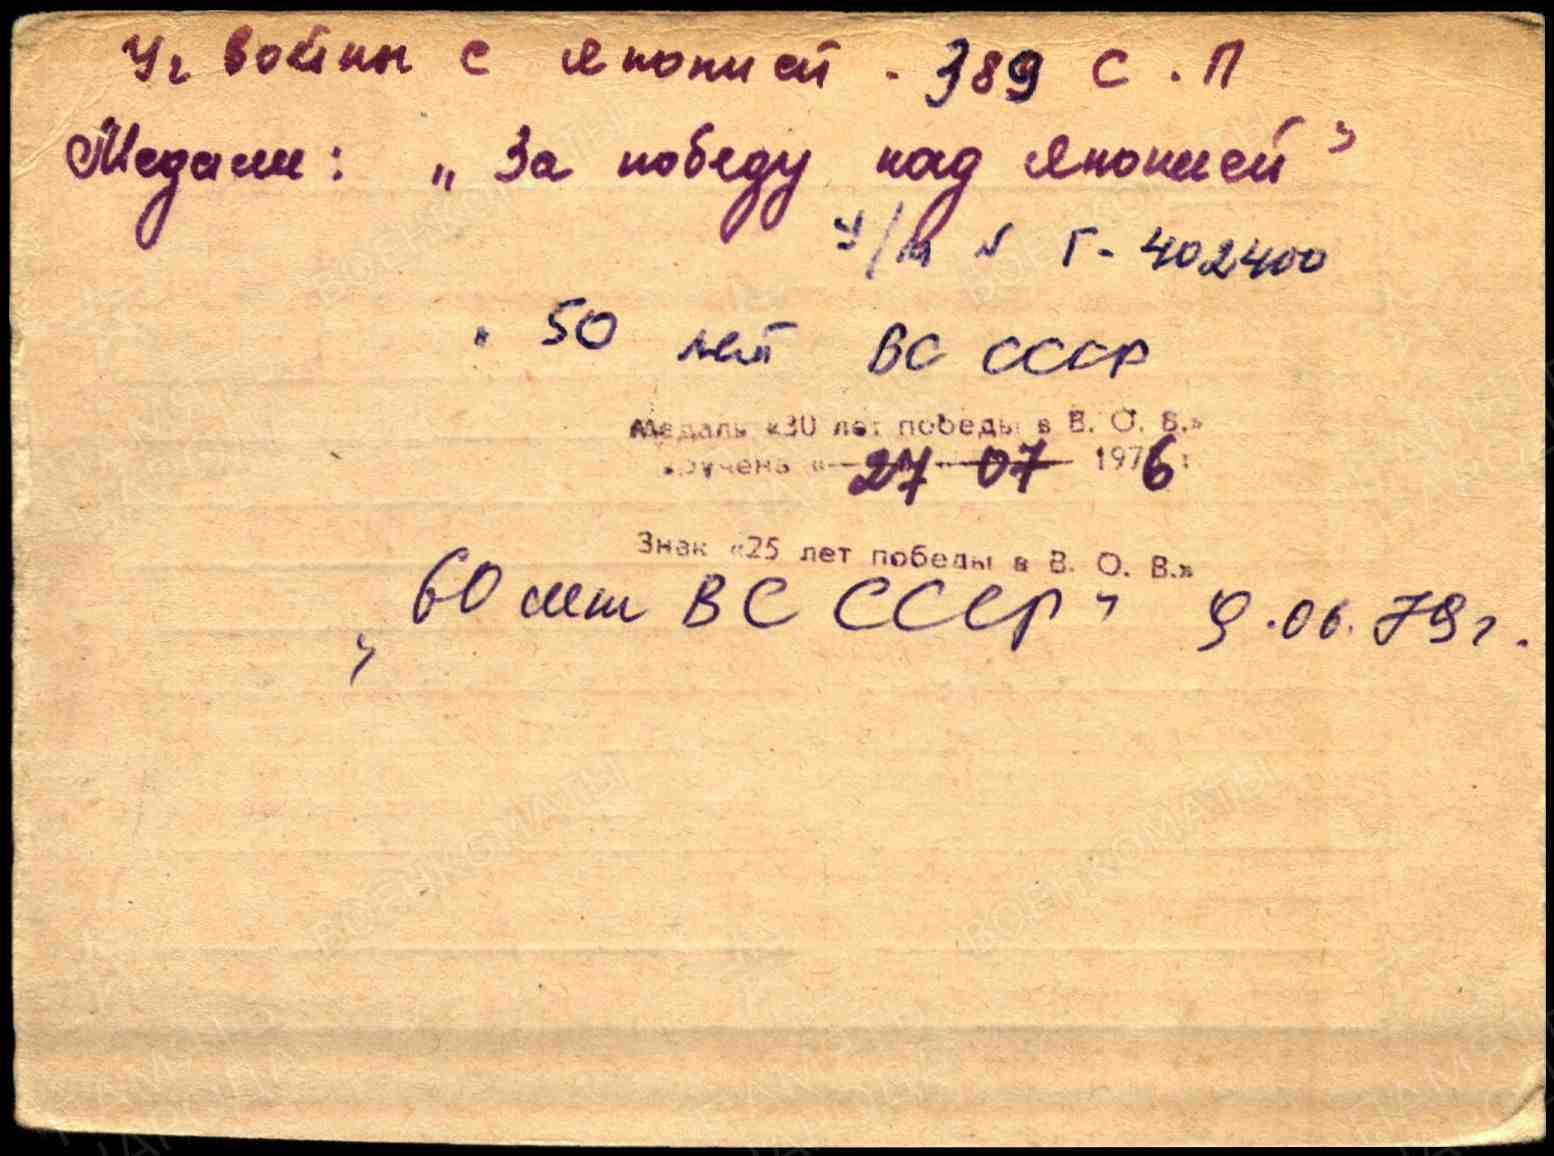 Уч войны с Японией. 389 С.П
Медали: „За победу над Японией"
У/м № Г-402400
" 50 лет ВС СССР
Медаль «30 лет победы в В. О. В.»
вручена « 27 07 1976 г
Знак «25 лет победы в В. О. В.»
„60 лет ВС СССР" 9.06.79г.